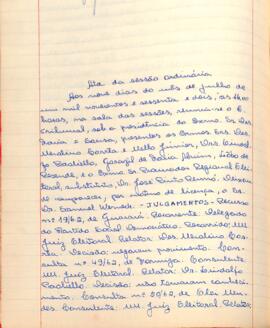 Ata da sessão ordinária
Aos nove dias do mês de julho de
um mil novecentos e sessenta e dois, às
horas, na sala das sessões, reuniu-se o E.
Tribunal, sob a presidência do Exmo. Sr. Des.
Faria e Sousa, presentes os Exmos. Srs. Des.
Merolino Corrêa e Mello Júnior, Drs. Lindol-
fo Paolielo, Gorazil de Faria Alvim,
Rezende, e o Exmo. Sr. Procurador Regional Elei-
toral, substituto, Dr. José Pinto Renó. Deixou
de comparecer, por motivo de licença, o Dr.
Dr. Samuel Werneck. - JULGAMENTOS - Recurso
nº 19/62, de Guarani. Recorrente: Delegado
do Partido Social Democrático. Recorrido: MM.
Juiz Eleitoral. Relator: Des. Merolino Corrêa.
Decisão: negaram provimento. Con-
sulta nº 49/62, de Formiga. Consulente:
MM. Juiz Eleitoral. Relator: Dr. Lindolfo
Paolielo. Decisão: não tomaram conheci-
mento. Consulta nº 50/62, de
des. Consulente: MM. Juiz Eleitoral. Relator: